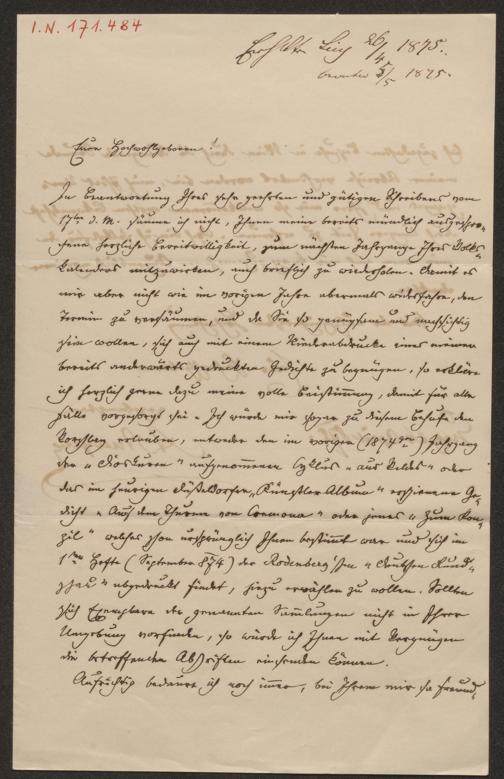 I.N. 171.484
Erhalten 26/4 1875.
beantw. 5/5 1875.
Euer Hochwohlgeboren!
In Beantwortung Ihres sehr geehrten und gütigen Schreibens vom
17ten d. M. säume ich nicht, Ihnen meine bereits mündlich ausgespro-
chene herzliche Bereitwilligkeit, zum nächsten Jahrgange Ihres Volks-
kalenders mitzuwirken, auch brieflich zu wiederholen. Damit es
mir aber nicht wie im vorigen Jahre abermals widerfahre, den
Termin zu versäumen, und da Sie so genügsam und nachsichtig
sein wollen, sich auch mit einem Wiederabdrucke eines meiner
bereits anderwärts gedruckten Gedichte zu begnügen, so erkläre
ich herzlich gerne dazu meine volle Beistimmung, damit für alle
Fälle vorgesorgt sei. Ich würde mir sogar zu diesem Behufe den
Vorschlag erlauben, entweder den im vorigen (1874ger) Jahrgang
der „Dioskuren“ aufgenommenen Cyklus „aus Veldes“ oder
das im heurigen Düsseldorfer „Künstler-Album“ erschienene Ge-
dicht „Auf dem Thurme von Cremona“ oder jenes „Zum Kon-
zil“ welches schon ursprünglich Ihnen bestimmt war und sich im
1ten Hefte (September 874) der Rodenberg'schen „Deutschen Rund-
schau“ abgedruckt findet, hiezu erwählen zu wollen. Sollten
sich Exemplare der genannten Sammlungen nicht in Ihrer
Umgebung vorfinden, so würde ich Ihnen mit Vergnügen
die betreffenden Abschriften einsenden können.
Aufrichtig bedaure ich noch immer, bei Ihrem mir so freund-